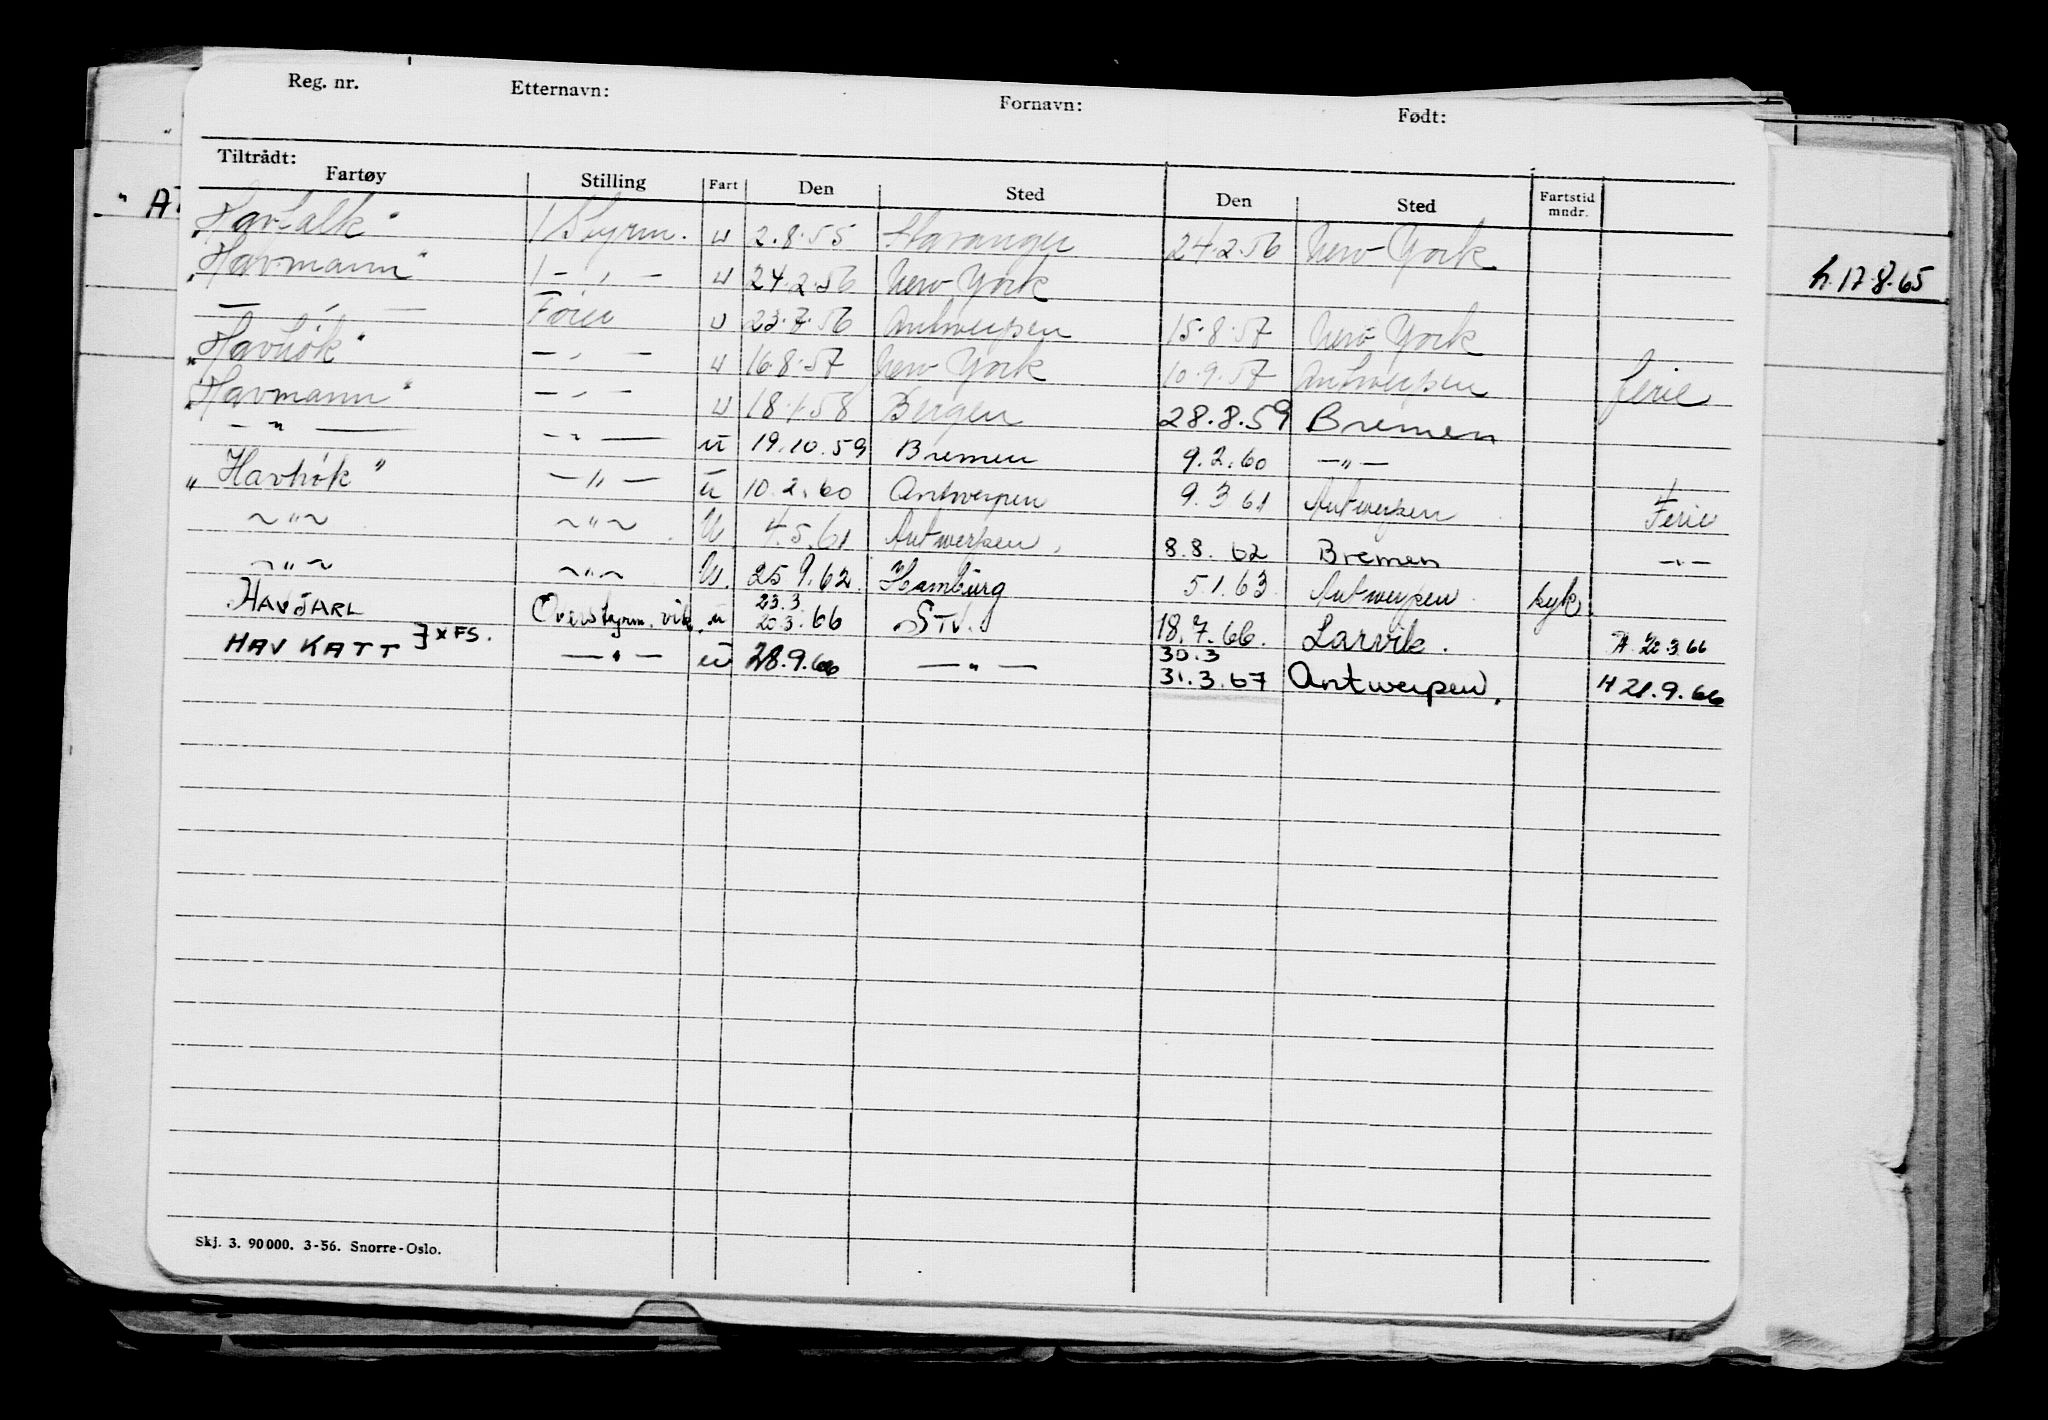 Reg. nr. Etternavn: Fornavn: Født:
Tiltrådt:
Fartøy Stilling Fart Den Sted Den Sted Fartstid mndr.
"Havfalk" 1 Styrm. u 2.8.55 Stavanger 24.2.56 New York
"Havmann" 1 - " - u 24.2.56 New York
— " — Fører u 23.7.56 Antwerpen 15.8.57 New York
"Havhök" - " - u 16.8.57 New York 10.9.57 Antwerpen ferie
"Havmann" - " - u 18.1.58 Bergen 28.8.59 Bremen
- " — - " — u 19.10.59 Bremen 9.2.60 — " —
"Havhök" — " — u 10.2.60 Antwerpen 9.3 61 Antwerpen Ferie
~ " ~ ~ " ~ U 4.5.61 Antwerpen 8.8.62 Bremen - " -
~ " ~ ~ " ~ U. 25 9.62 Hamburg 5.1.63 Antwerpen syk.
HAVJARL Overstyrm. vik. u 23.3 20.3.66 STV. 18.7.66. Larvik. A 22.3.66
HAV KATT } x FS. — " — u 28.9.66 — " — 30.3 31.3.67 Antwerpen. H 21.9.66
h. 17.8.65
Skj. 3. 90 000. 3-56. Snorre-Oslo.